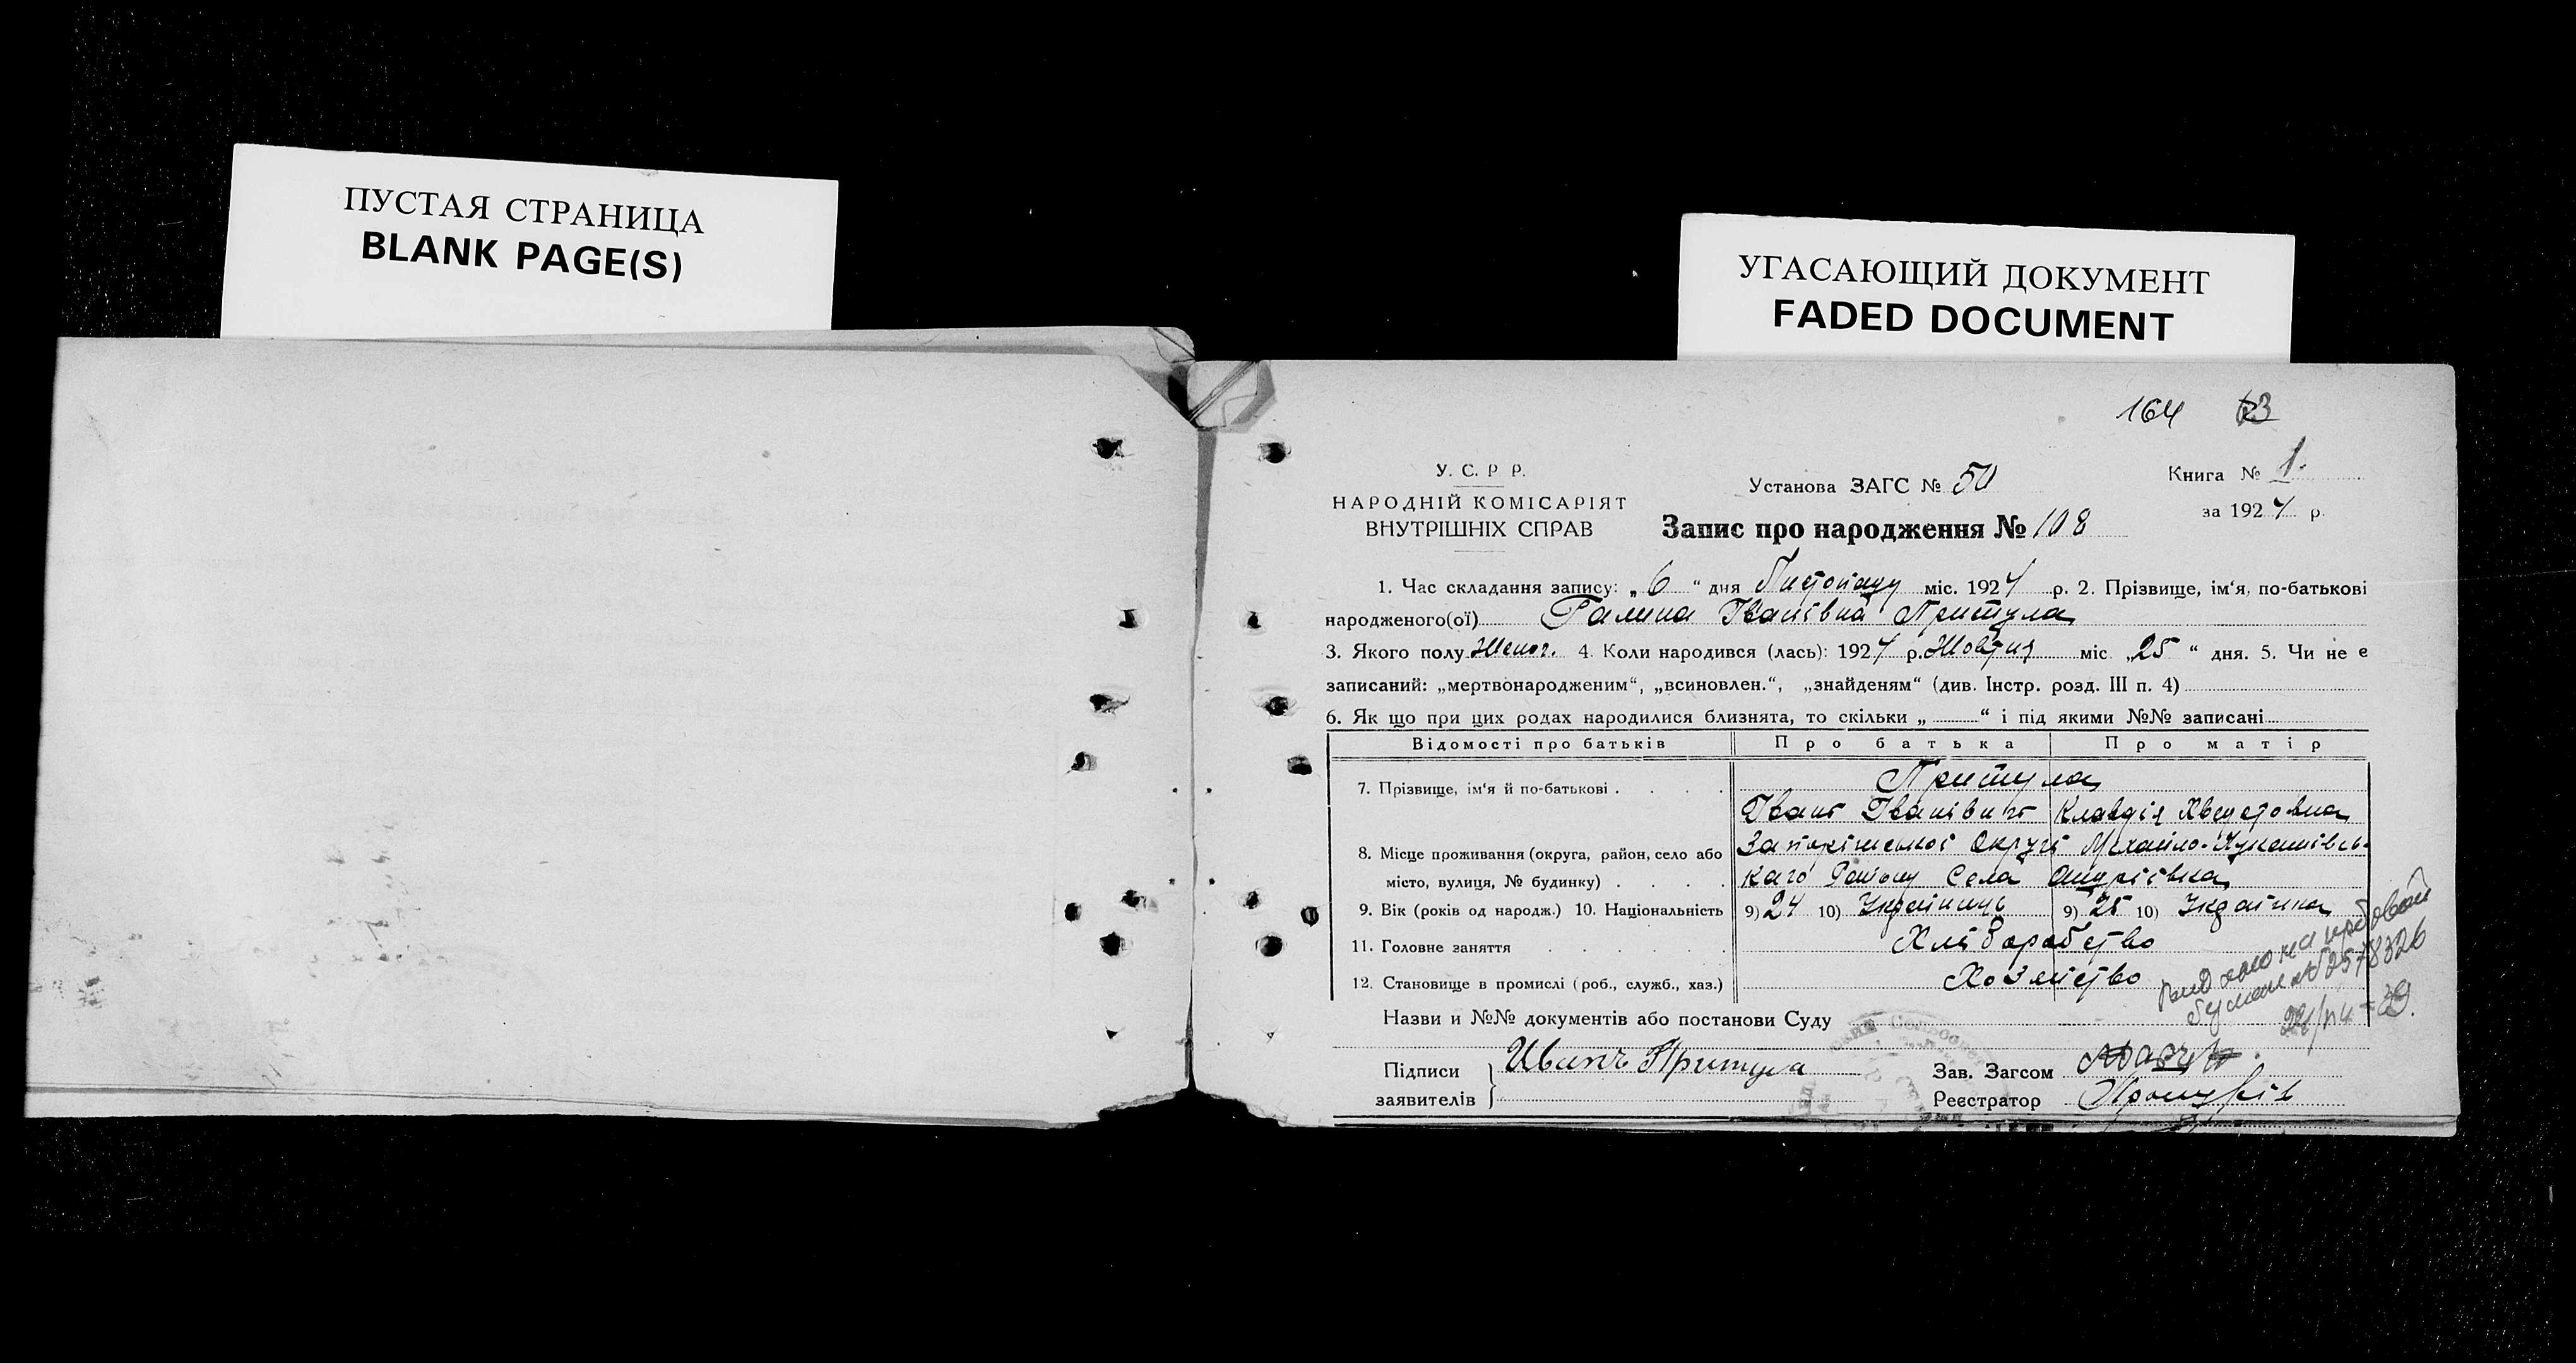 ПУСТАЯ СТРАНИЦА
BLANK PAGE(S)
УГАСАЮЩИЙ ДОКУМЕНТ
FADED DOCUMENT
164 63
У. С. Р Р.
НАРОДНІЙ КОМІСАРІЯТ
ВНУТРІШНІХ СПРАВ
Установа ЗАГС № 50
Запис про народження № 108
Книга № 1.
за 1927 р.
1. Час складання запису: „ 6 “ дня Листопаду міс. 1927 р. 2. Прізвище, ім‘я, по-батькові
народженого(ої) Галина Іванівна Притула
3. Якого полу Женог. 4. Коли народився (лась): 1927 р. Жовтня міс. „25 “ дня. 5. Чи не є
записаний: „мертвонародженим“, „всиновлен.“, „знайденям“ (див. Інстр. розд. III п. 4)
6. Як що при цих родах народилися близнята, то скільки „ “ і під якими №№ записані
Відомості про батьків Про батька Про матір
7. Прізвище, ім‘я й по-батькові . Притула
Іван Іванівич Клавдія
8. Місце проживання (округа, район, село або Запоріжської Округи Михайло-Лукашівсь-
місто, вулиця, № будинку) . кого Району Села Андріівка
9. Вік (років од народж.) 10. Національність 9) 24 10) Українець 9) 25 10) Українка
11. Головне заняття Хліборобство
12. Становище в промислі (роб., служб., хаз.) Хозяйство
№ 2578326
Назви и №№ документів або постанови Суду
Підписи Иванъ Притула
заявителів
Зав. Загсом
Реєстратор